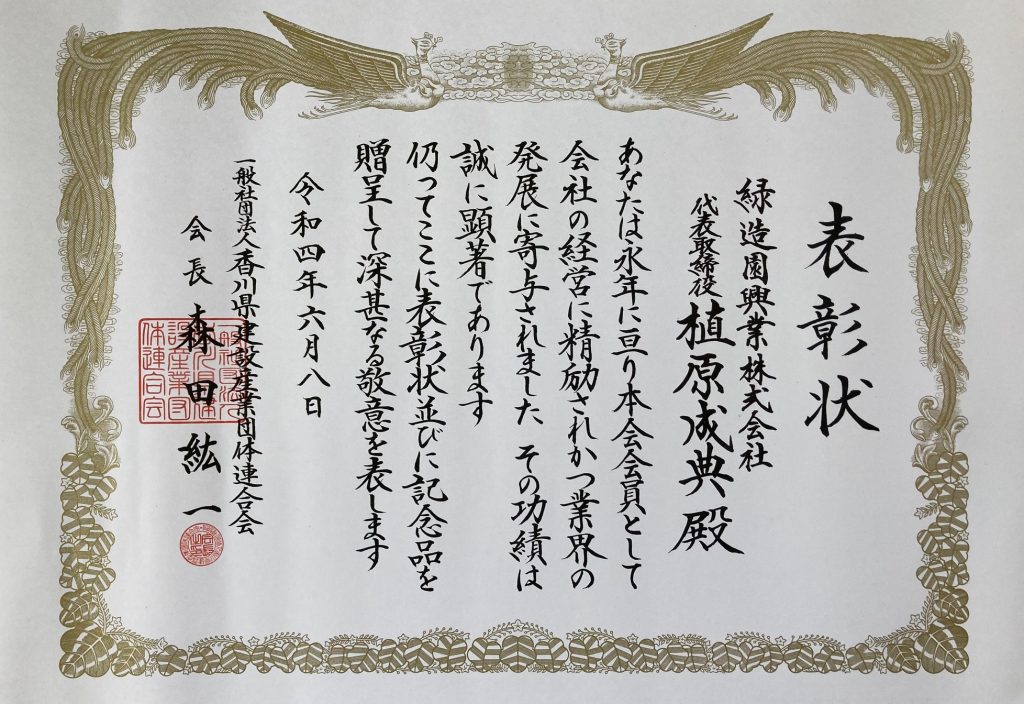 表彰状
緑造園興業株式会社
代表取締役 植原成典殿
あなたは永年に亘り本会会員として
会社の経営に精励されかつ業界の
発展に寄与されました その功績は
誠に顕著であります
仍ってここに表彰状並びに記念品を
贈呈して深甚なる敬意を表します
令和四年六月八日
一般社団法人香川県建設産業団体連合会
会長 森田紘一